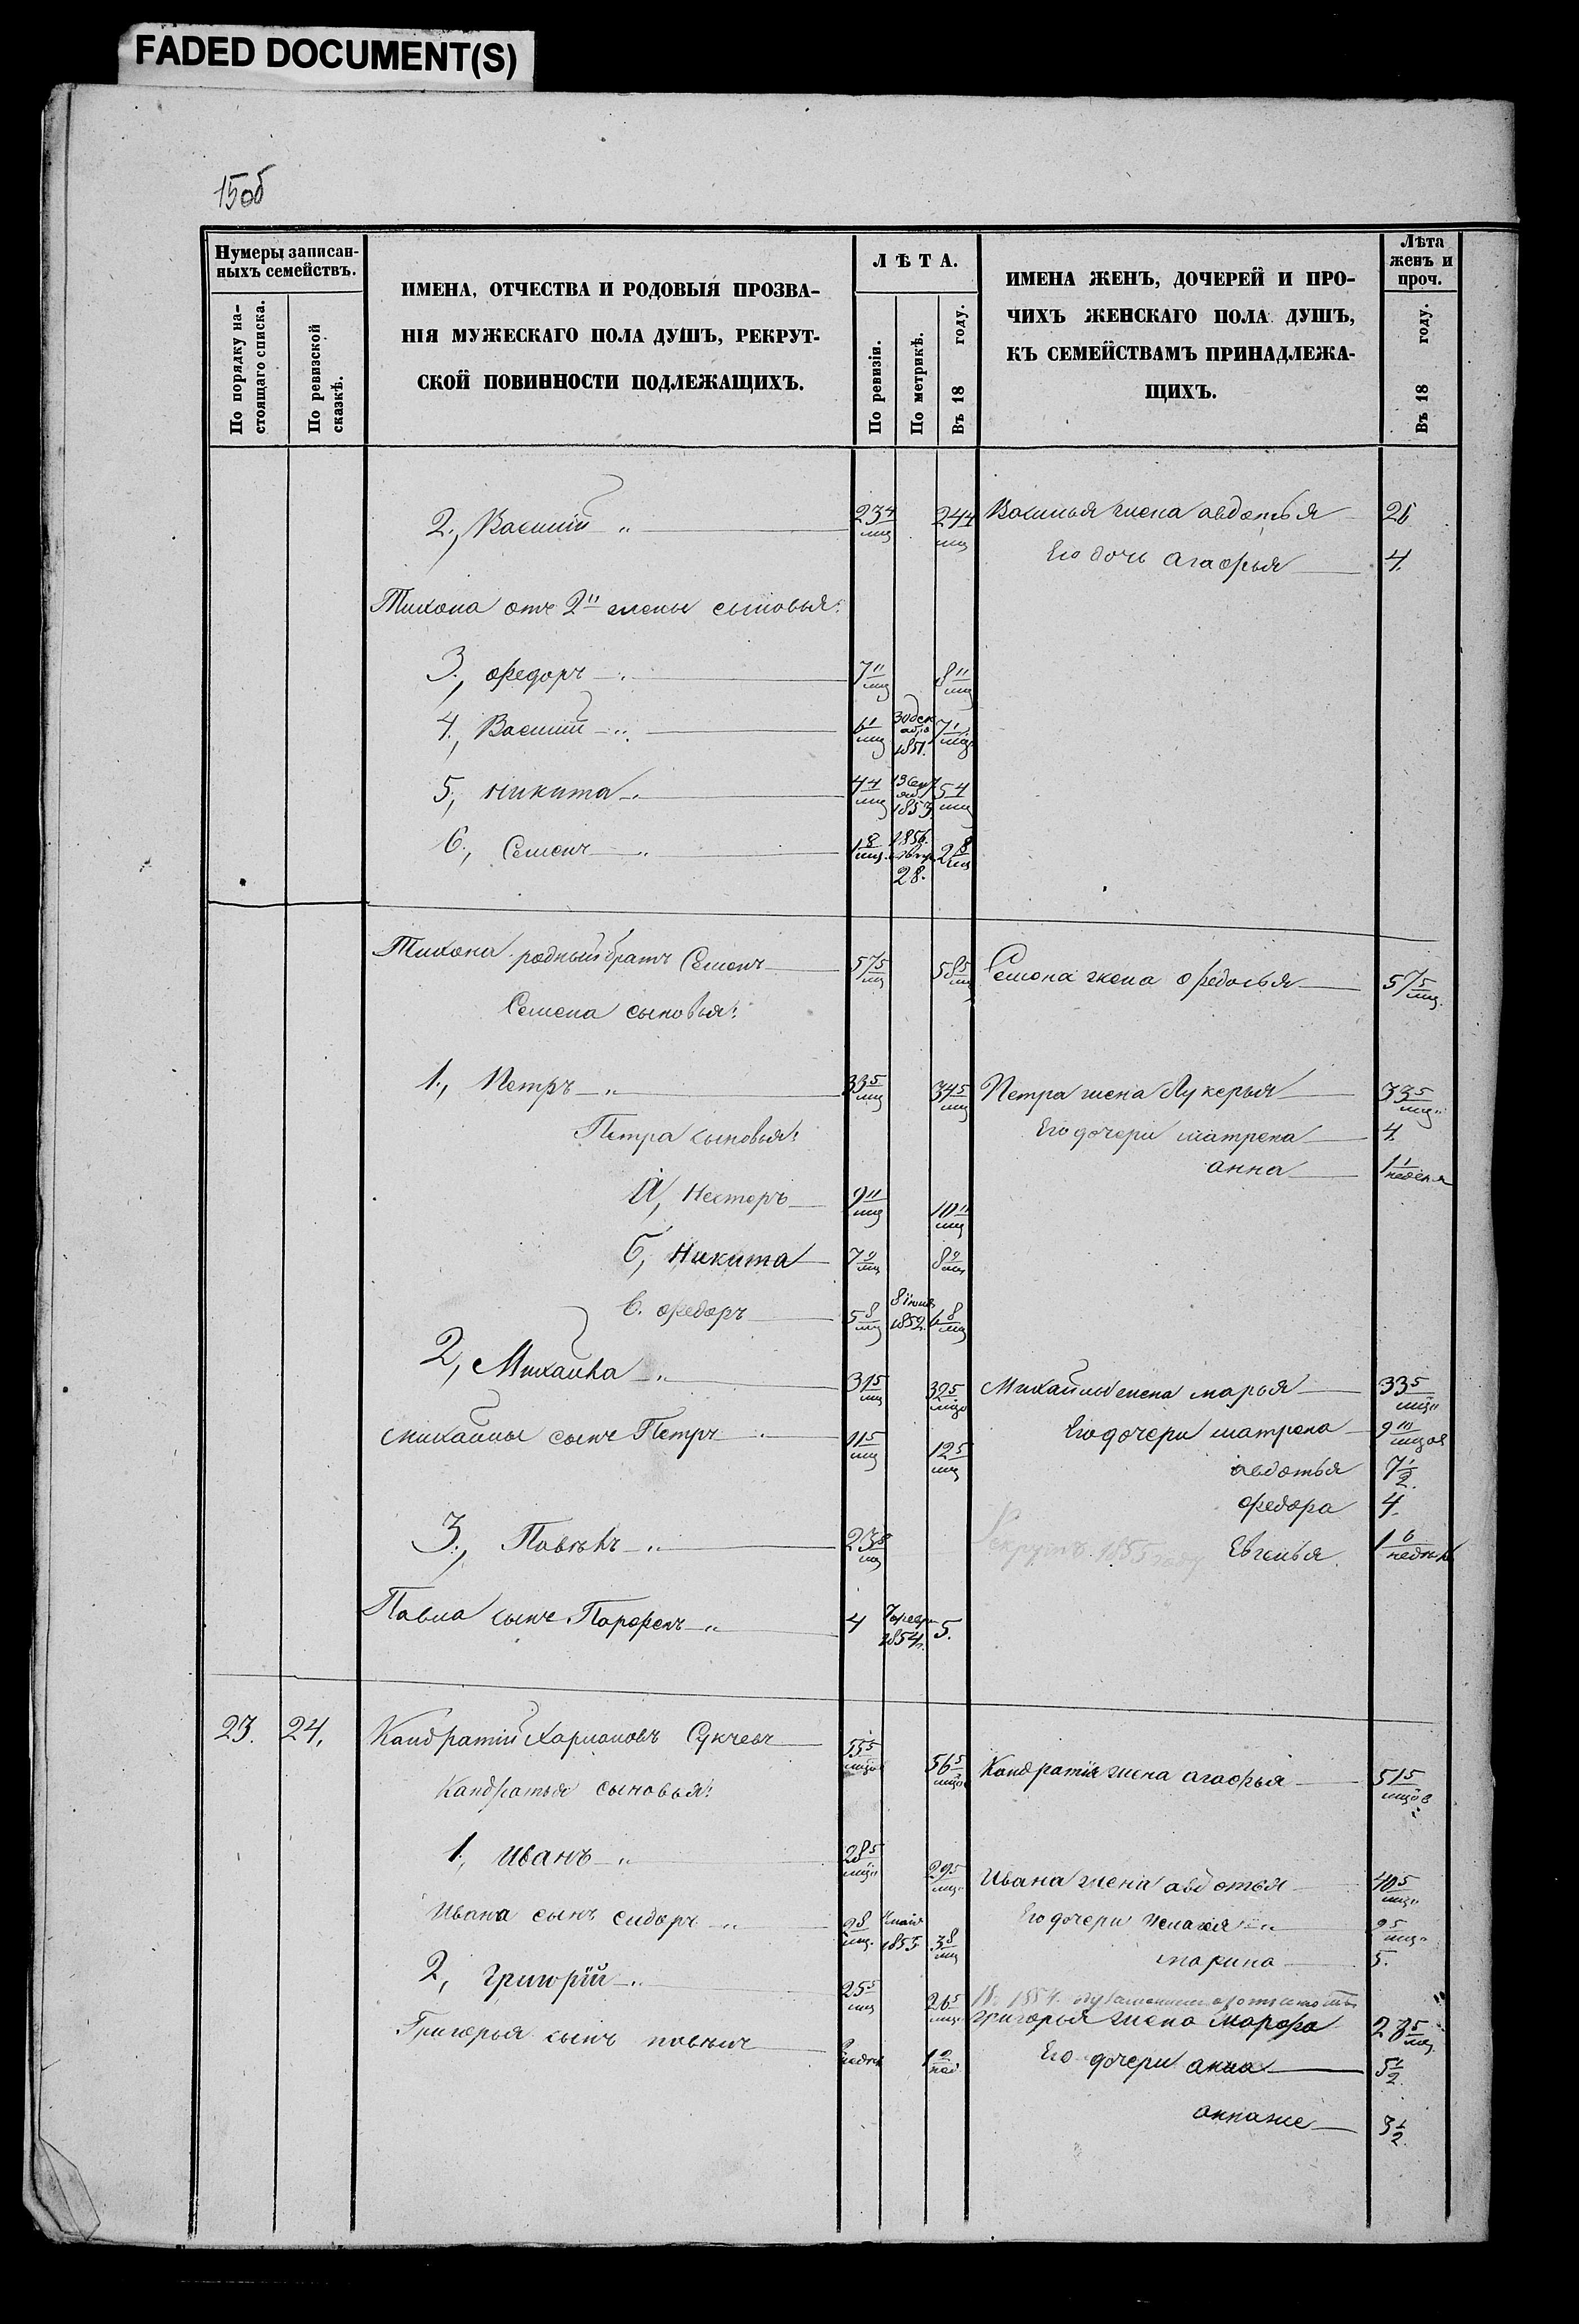 FADED DOCUMENT(S)
15об
Нумеры записан-
ныхъ семействъ.
По порядку на-
стоящаго списка.
По ревизской
сказкѣ.
ИМЕНА, ОТЧЕСТВА И РОДОВЫЯ ПРОЗВА-
НІЯ МУЖЕСКАГО ПОЛА ДУШЪ, РЕКРУТ-
СКОЙ ПОВИННОСТИ ПОДЛЕЖАЩИХЪ.
ЛѢТА.
По ревизіи.
По метрикѣ.
Въ 18 году.
ИМЕНА ЖЕНЪ, ДОЧЕРЕЙ И ПРО-
ЧИХЪ ЖЕНСКАГО ПОЛА ДУШЪ,
КЪ СЕМЕЙСТВАМЪ ПРИНАДЛЕЖА-
ЩИХЪ.
Лѣта
женъ и
проч.
Въ 18 году.
2., Василій „ 23 4/мц 24 4/мц Василья жена авдотья 26
Его дочь агафья 4.
Тихона отъ 2й жены сыновья:
3., федоръ „ 7 11/мц 8 11/мц
4., Василій „ 6 1/мц 30 дек 1851. 7 1/мц
5., никита „ 4 4/мц 13 1853 5 4/мц
6., Семенъ „ 1 8/мц 1856. 28. 2 8/мц
Тихона родный братъ Семенъ 57 5/мц 58 5/мц Семена жена федосья 57 5/мц.
Семена сыновья:
1., Петръ „ 33 5/мц 34 5/мц Петра жена Лукерья 33 5/мц
Петра сыновья: Его дочери матрена 4.
анна 1 1/неделя
А, Несторъ 9 11/мц 10 11/мц
Б, Никита 7 9/мц 8 9/мц
В. федоръ 5 8/мц 8 іюня 1852. 6 8/мц
2., Михайла „ 31 5/мц 32 5/мцо Михайлы жена марья 33 5/мц
михайлы сынъ Петръ „ 11 5/мц 12 5/мц Его дочери матрена 9
авдотья 7 1/2.
федора 4.
3., Павелъ „ 23 8/мц Рекрутъ 1855 году Евгенья 1 6/недель
Павла сынъ Парфенъ „ 4 7 февр 1854. 5.
23. 24. Кандратій Харламовъ 55 5/мцо 56 5/мцо Кандратія жена агафья 51 5/мцов
Кандратья сыновья:
1., Иванъ „ 28 5/мц 29 5/мц Ивана жена авдотья 40 5/мц
Ивана сынъ сидоръ „ 2 8/мц. мая 1855 3 8/мц Его дочери пелагея „ 9 5/мц
марина 5.
2., Григорій „ 25 5/мц 26 5/мц
Григорья жена марфа 23 5/мц
Григорья сынъ павелъ 1 2/нед Его дочери анна 5 1/2.
анна же 3 1/2.